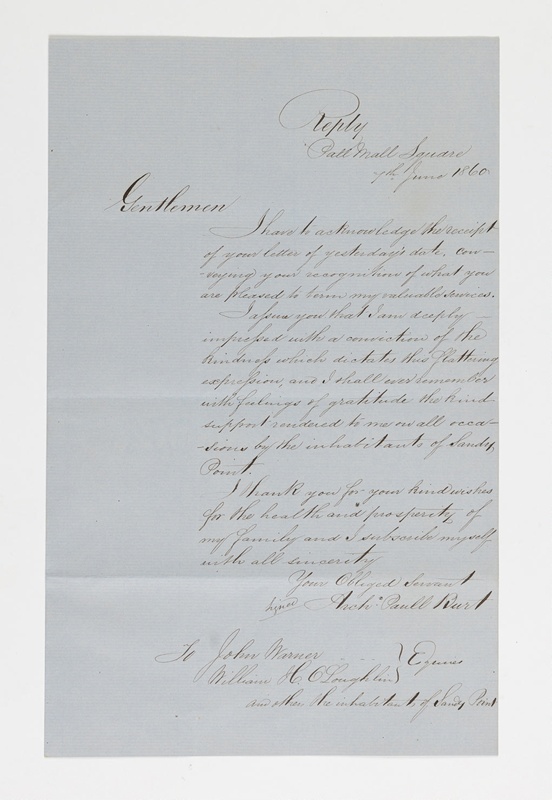 Reply
Pall Mall Square
7th June 1860.
Gentlemen
I have to acknowledge the receipt
of your letter of yesterday's date, con-
veying your recognition of what you
are pleased to term my valuable services.
I assure you that I am deeply
impressed with a conviction of the
kindness which dictates this flattering
expression, and I shall ever remember
with feelings of gratitude the kind
support rendered to me on all occa-
-sions by the inhabitants of Sandy
Point.
I thank you for your kind wishes
for the health and prosperity of
my family and I subscribe myself
with all sincerity
Your Obliged Servant
signed Archd Paull Burt
To John Warner
William H. O'Loughlin } Esquires
and other the inhabitants of Sandy Point